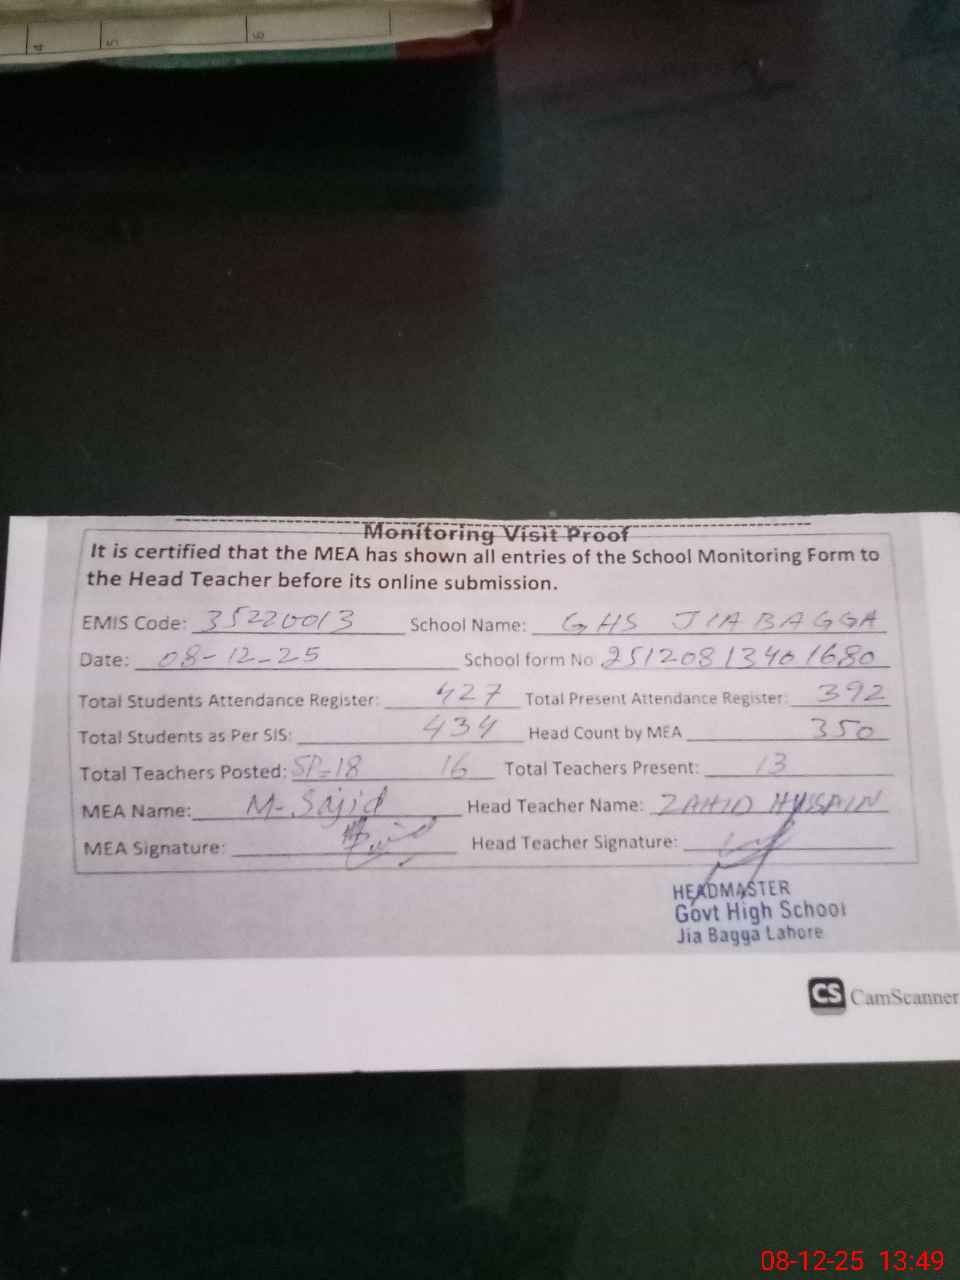 4 5 6
Monitoring Visit Proof
It is certified that the MEA has shown all entries of the School Monitoring Form to
the Head Teacher before its online submission.
EMIS Code: 35220013 School Name: GHS JIA BAGGA
Date: 08-12-25 School form No 2512081340 1680
Total Students Attendance Register: 427 Total Present Attendance Register: 392
Total Students as Per SIS: 434 Head Count by MEA 350
Total Teachers Posted: SP=18 16 Total Teachers Present: 13
MEA Name: M-Sajid Head Teacher Name: ZAHID HUSSAIN
MEA Signature: Head Teacher Signature:
HEADMASTER
Govt High School
Jia Bagga Lahore
CS CamScanner
08-12-25 13:49